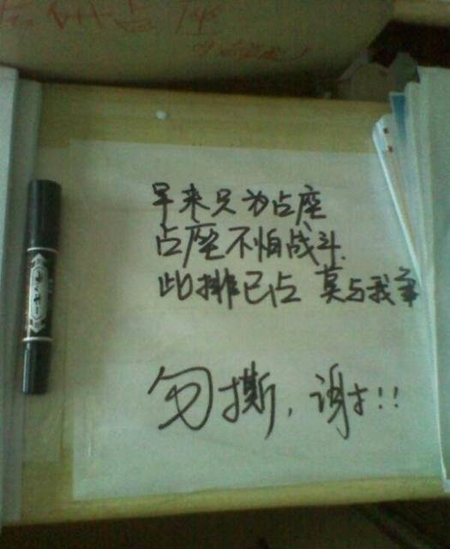 早来只为占座
占座不怕战斗.
此排已占 莫与我争
勿撕，谢谢!!